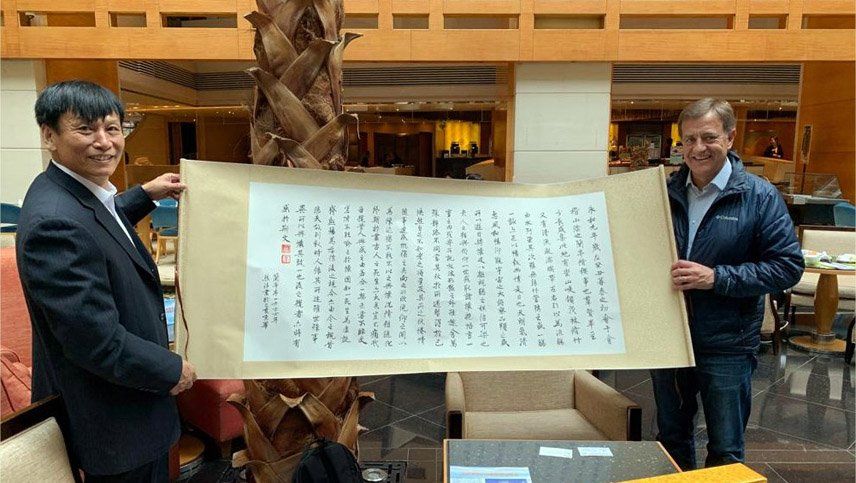 永和九年歲在癸丑暮春之初會于會
稽山陰之蘭亭脩稧事也羣賢畢至
少長咸集此地有崇山峻領茂林脩竹
又有清流激湍暎帶左右引以為流觴
曲水列坐其次雖無絲竹管弦之盛一觴
一詠亦足以暢敘幽情是日也天朗氣清
惠風和暢仰觀宇宙之大俯察品類之盛
所以遊目騁懷足以極視聽之娛信可樂也
夫人之相與俯仰一世或取諸懷抱悟言一
室之內或因寄所託放浪形骸之外雖趣舍萬
殊靜躁不同當其欣於所遇暫得於己
快然自足不知老之將至及其所之既倦情
隨事遷感慨係之矣向之所欣俛仰之間以
為陳跡猶不能不以之興懷況脩短隨化
終期於盡古人云死生亦大矣豈不痛哉
每攬昔人興感之由若合一契未嘗不臨文
嗟悼不能喻之於懷固知一死生為虛誕
齊彭殤為妄作後之視今亦由今之視昔
悲夫故列敘時人錄其所述雖世殊事
異所以興懷其致一也後之攬者亦將有
感於斯文
Columbia